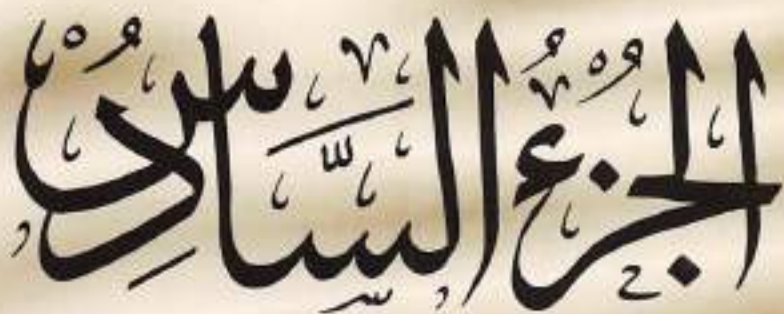 الجُزْءُ السَّادِسُ